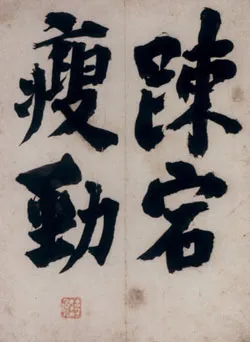 踈宕
瘦勁